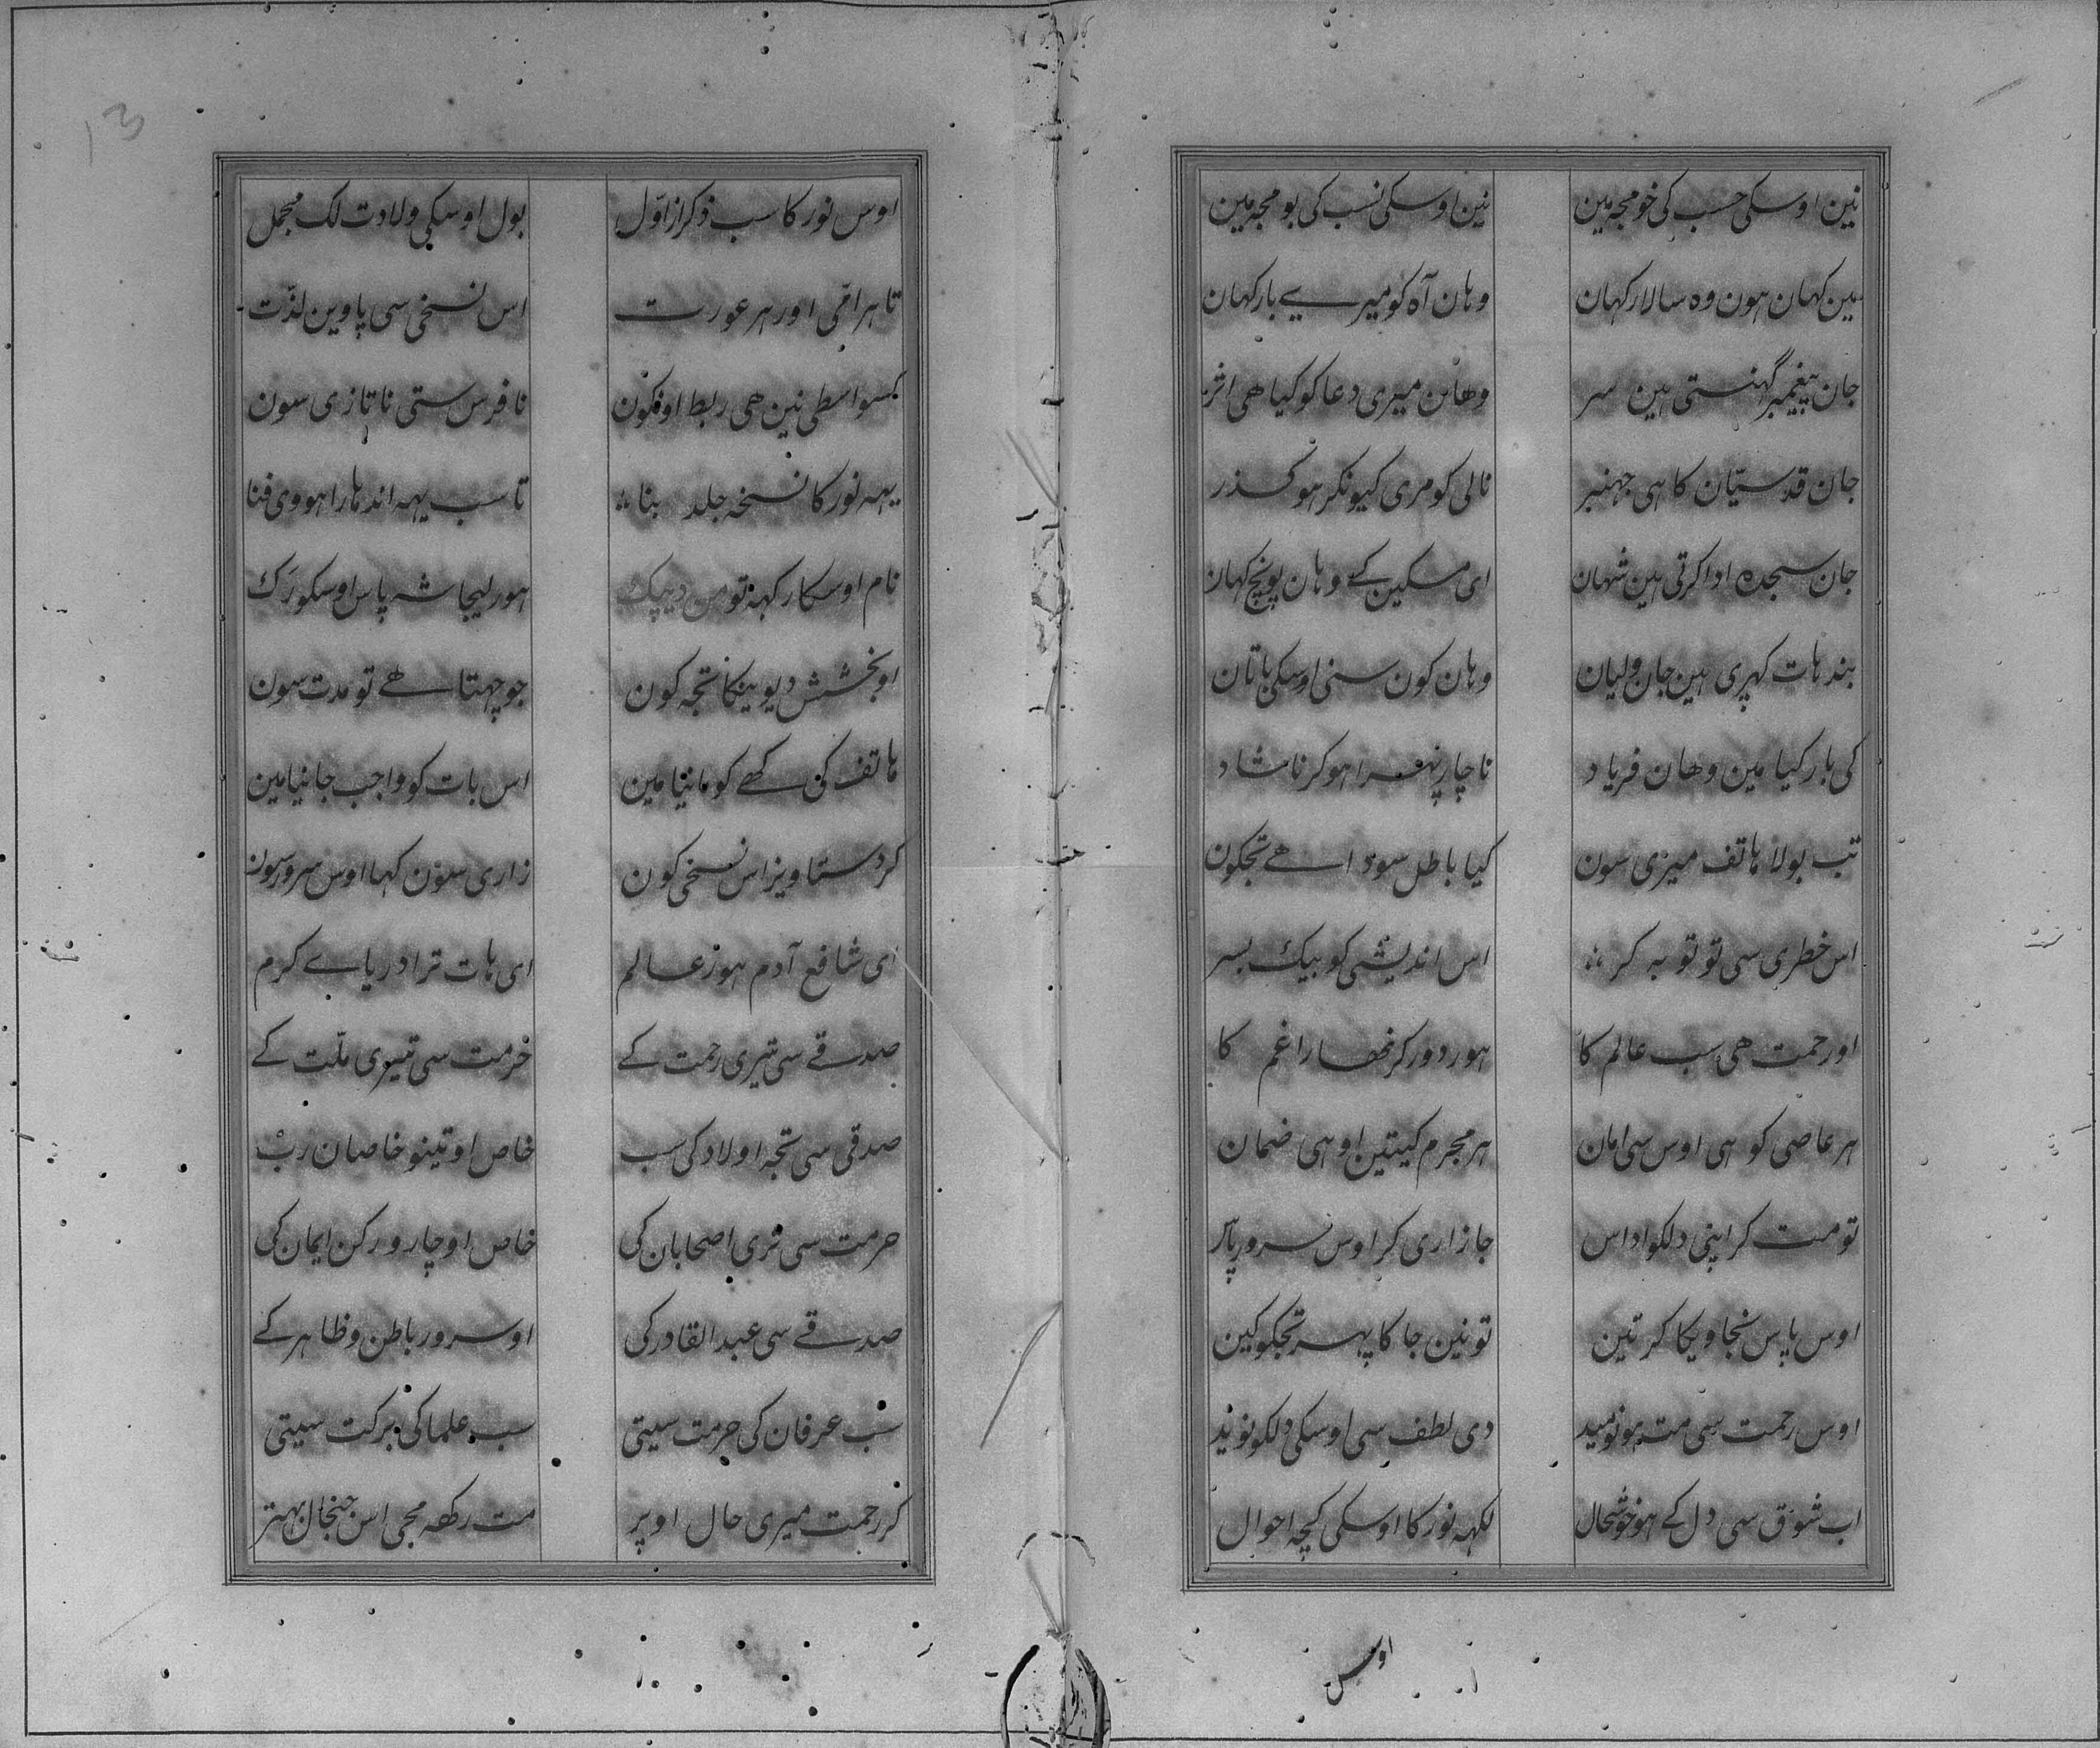 نین اوسکی حسب کی خو مجہ مین نین اوسکی نسب کی بو مجہ مین
مین کہان ہون وہ سالار کہان وہان آہ کو میرے بار کہان
جان پیغمبر گہستی ہین سر وهان میری دعا کو کیا هی اثر
جان قدسیّان کا ہی جہنبر نالی کو مری کیونکر ہو گذر
جان سجدہ ادا کرتی ہین شہان ای مسکین کے وہان پونچ کہان
بند ہات کہری ہین جان ولیان وہان کون سنی اوسکی باتان
کی بار کیا مین وهان فریاد ناچار پہرا ہو کر ناشاد
تب بولا ہاتف میری سون کیا باطل سودا هے تجکون
اس خطری سی تو توبہ کر اس اندیشی کو بیک بسر
او رحمت هی سب عالم کا ہور دور کرنهارا غم کا
ہر عاصی کو ہی اوس سی امان ہر مجرم کیتین او ہی ضمان
تو مت کر اپنی دلکو اداس جا زاری کر اوس سرور پاس
اوس پاس نجاویگا کر تین تو نین جا کا پہر تجکو کین
اوس رحمت سی مت ہو نومید دی لطف سی اوسکی دلکو نوید
اب شوق سی دل کے ہو خوشحال لکہہ نور کا اوسکی کچہ احوال
اوس
13
اوس نور کا سب ذکر از اوّل بول اوسکی ولادت لک مجمل
تا ہر امّی اور ہر عورت اس نسخی سی پاوین لذّت
کسواسطی نین هی ربط اونکون نا فرس ستی نا تازی سون
یہہ نور کا نسخہ جلد بنا تا سب یہہ اندہارا ہووی فنا
نام اوسکا رکہہ تو من دیپک ہور لیجا شہ پاس اوسکو رک
او بخشش دیوینگا تجہ کون جو چہتا هے تو مدت سون
ہاتف کی کہے کو مانیا مین اس بات کو واجب جانیا مین
کر دستاویز اس نسخی کون زاری سون کہا اوس سرور سون
ای شافع آدم ہور عالم ای ہات ترا دریاے کرم
صدقے سی تیری رحمت کے حرمت سی تیری ملّت کے
صدقی سی تجہ اولاد کی سب خاص او تینو خاصان رب
حرمت سی تری اصحابان کی خاص او چارو رکن ایمان کی
صدقے سی عبد القادر کی او سرور باطن و ظاہر کے
سب عرفان کی حرمت سیتی سب علما کی برکت سیتی
کر رحمت میری حال اوپر مت رکهہ مجی اس جنجال بہتر